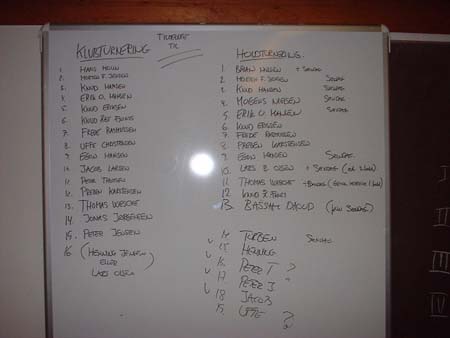 TILMELDT
TIL
KLUBTURNERING
1. HANS
2. MORTEN F. JENSEN
3. KNUD HANSEN
4. ERIK O. HANSEN
5. KNUD ERIKSEN
6. KNUD
7. FREDE RASMUSSEN
8. UFFE CHRISTENSEN
9. EGON HANSEN
10. JACOB LARSEN
11. PETER
12. PREBEN KARSTENSEN
13. THOMAS
14. JONAS JØRGENSEN
15. PETER JENSEN
16 (HENNING JENSEN
ELLER
LARS OLSEN
HOLDTURNERING
1. BRIAN HANSEN + SØNDAG
2. MORTEN F. JENSEN SØNDAG
3. KNUD HANSEN SØNDAG
4. MOGENS NIELSEN SØNDAG
5. ERIK O. HANSEN SØNDAG
6. KNUD ERIKSEN
7. FREDE RASMUSSEN
8. PREBEN KARSTENSEN
9. EGON HANSEN SØNDAG
10. LARS B. OLSEN + SØNDAG
11. THOMAS
12. KNUD
13. BASSHAM DAOUD (KUN SØNDAG)
14 TORBEN SØNDAG
V 15 HENNING
V 16 PETER T ?
V 17 PETER J. "
V 18 JACOB
19. UFFE ?